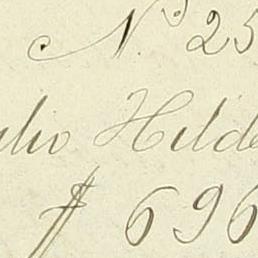 No 25
ulio Hilde
$ 696